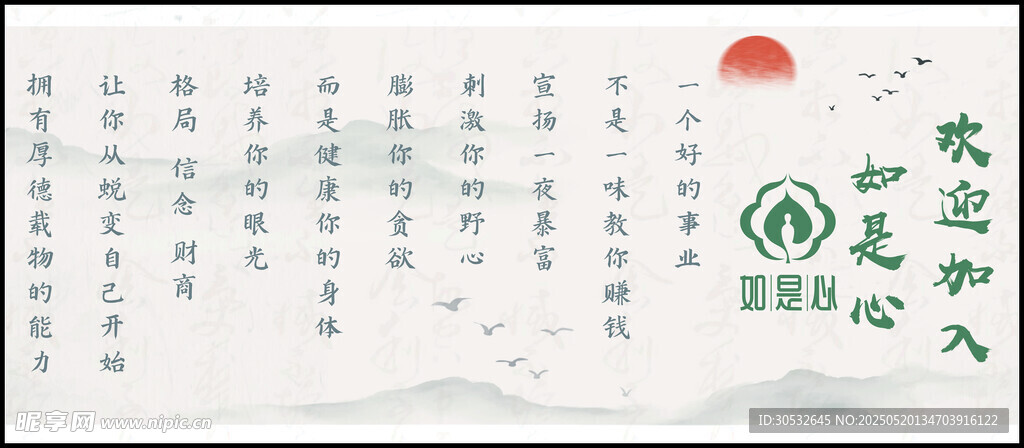 欢迎加入
如是心
如是心
一个好的事业
不是一味教你赚钱
宣扬一夜暴富
刺激你的野心
膨胀你的贪欲
而是健康你的身体
培养你的眼光
格局 信念 财商
让你从蜕变自己开始
拥有厚德载物的能力
昵享网 www.nipic.cn
ID:30532645 NO:20250520134703916122